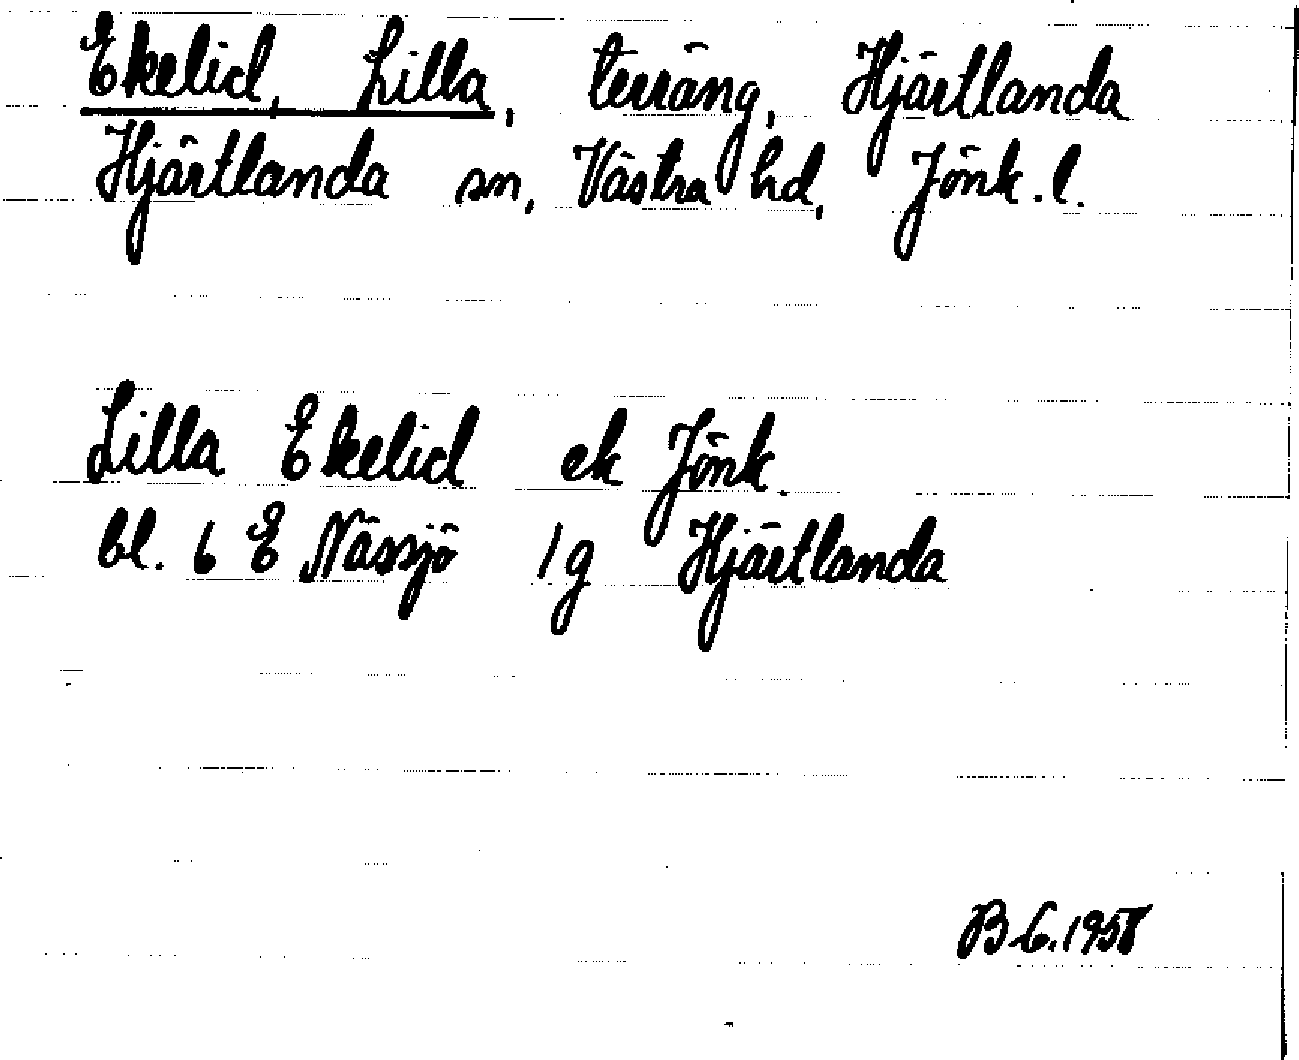 Ekelid, Lilla, terräng, Hjärtlanda
Hjärtlanda sn, Västra hd, Jönk. l.
Lilla Ekelid ek Jönk.
bl. 6 E Nässjö 1 g Hjärtlanda